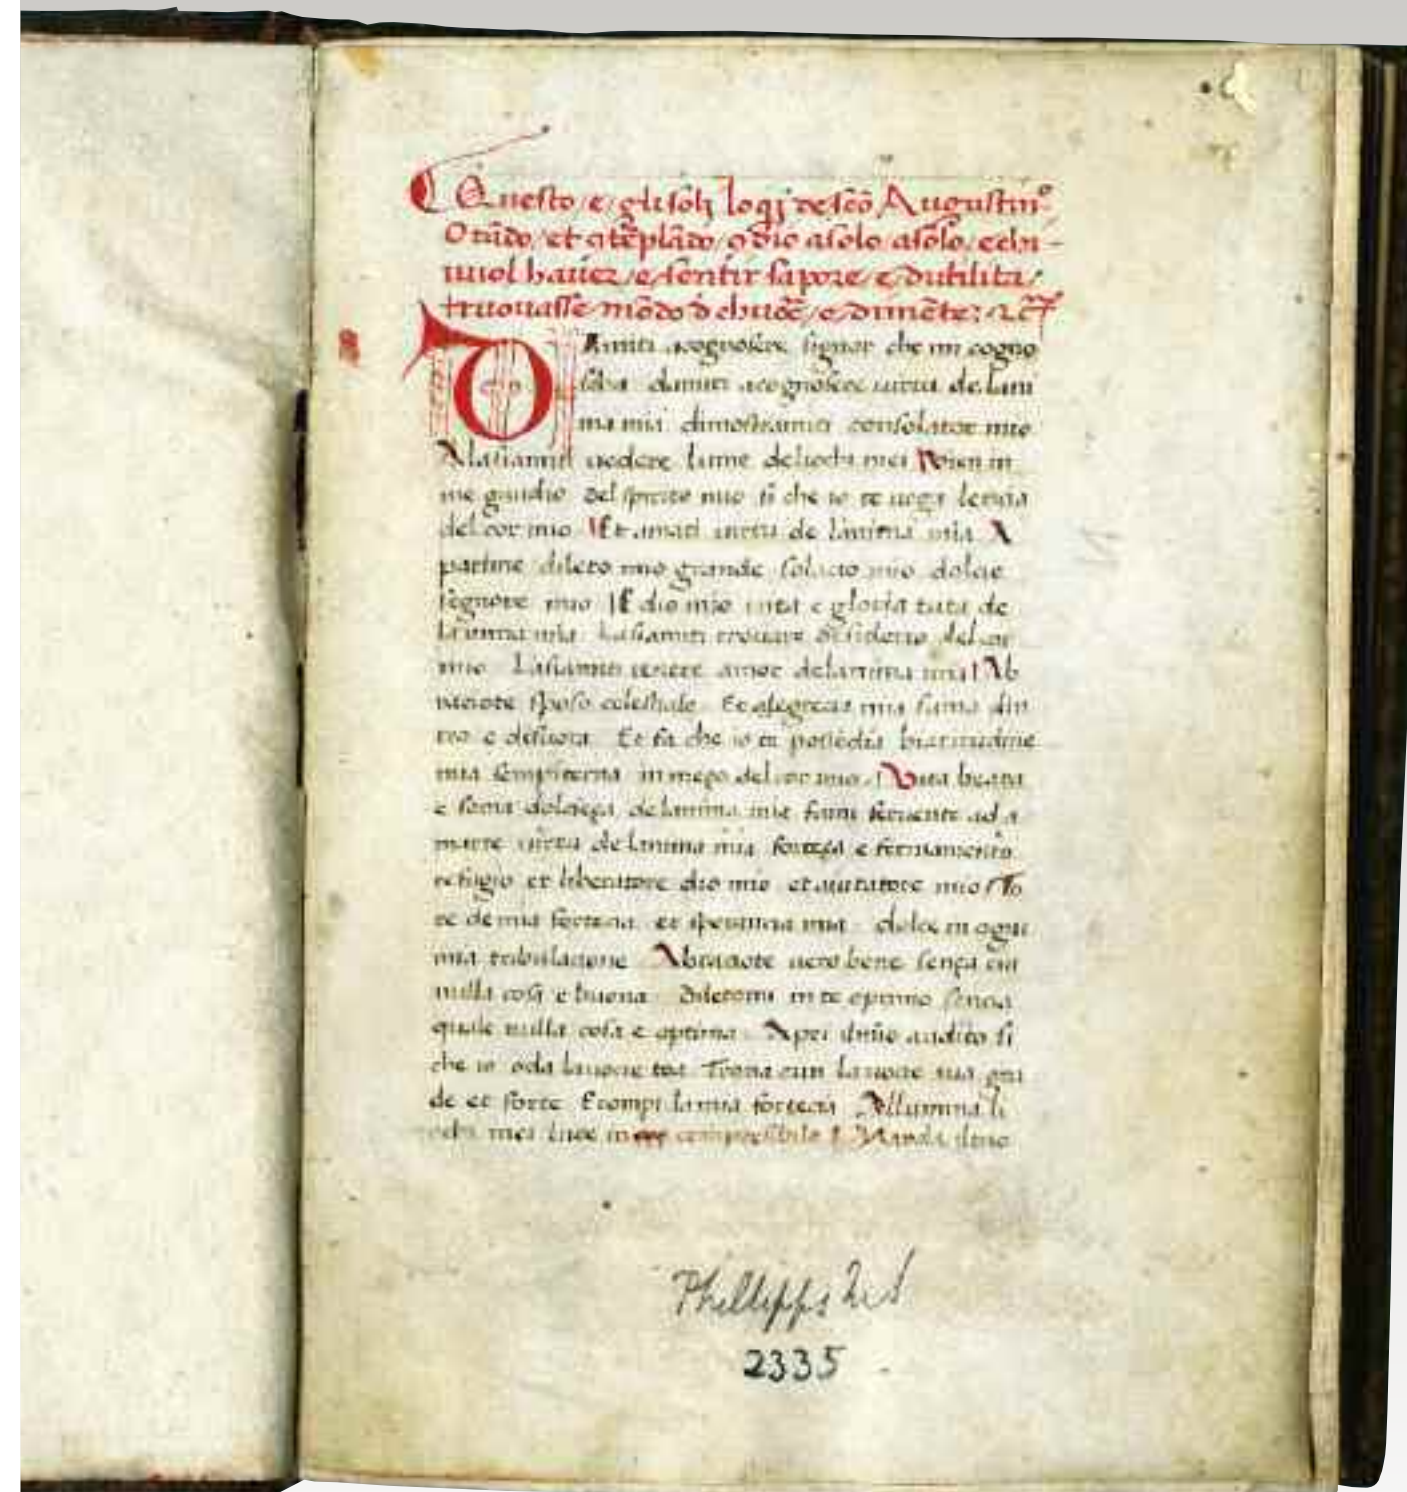 Questo e gli soli loqi de scō Augustino
Orādo et cōtēplādo cō dio a solo a solo e chi
vuol haver e sentir sapore e dutilita
truovasse modo
Amiti acognoscere signor che mi cogno
sciba damiti acognoscere virtu de lani
ma mia dimostramiti consolator mio
A lasiamiti vedere lume deliochi mei Vien in
me gaudio del spirito mio si che io te
del cor mio Et amati virtu de lanima mia A
parime dileto mio grande solacio mio dolcie
segnore mio dio mio vita e gloria tuta de
lanima mia Lasiamiti trovare desiderio del cor
mio Lasiamiti tenere amor delanima mia Ab
raciote sposo celestiale Et alegrecia mia suma din
tro e difuora Et fa che io te possedia biatitudine
mia sempiterna in meço del cor mio Vita beata
e soma dolcieça delanima mia fami fervente ad a
marte virtu delanima mia forteça e firmamento
refugio et liberatore dio mio et aiutatore mio To
re de mia fortecia et sperancia mia dolce in ogni
mia tribulacione Abraciote vero bene sença cui
nulla cosa e buona Diletomi in te optimo sencia
quale nulla cosa e optima Apri audito si
che io oda lavocie tua Trona cun la vocie tua gra
de et forte E compi la mia fortecia Allumina li
ochi mei luce in compresibile Manda
Phillipps MS
2335